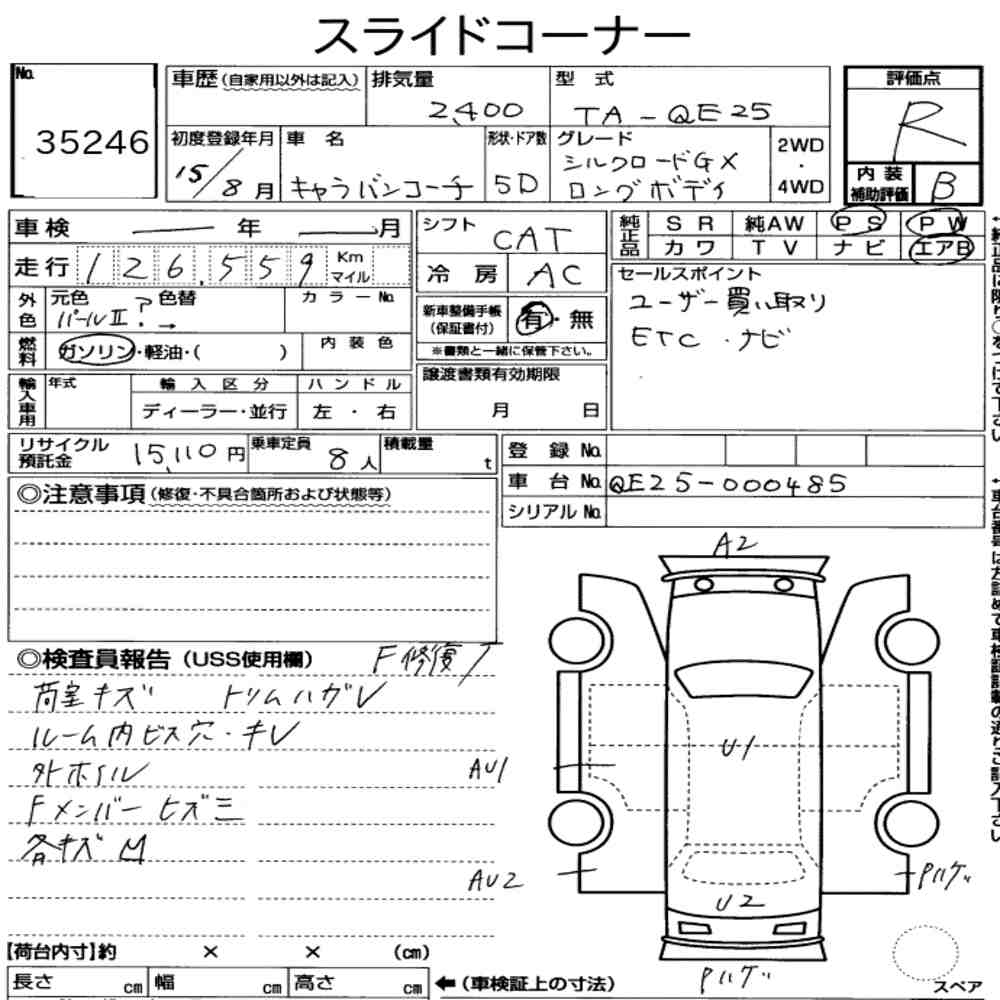 スライドコーナー
No. 35246
車歴(自家用以外は記入) 排気量 2,400 型 式 TA-QE25
評価点 R
初度登録年月 15/8月 車 名 キャラバンコーチ 形状・ドア数 5D グレード シルクロードGX ロングボディ 2WD・4WD
内装補助評価 B
車検 年 月 シフト CAT
純正品 SR 純AW PS PW
カワ TV ナビ エアB
走行 126,559 Km マイル 冷房 AC
セールスポイント
ユーザー買い取り
ETC・ナビ
外色 元色 パールⅡ ? 色替 → カラーNo.
新車整備手帳(保証書付) 有・無
※書類と一緒に保管下さい。
燃料 ガソリン・軽油・( ) 内装色
譲渡書類有効期限 月 日
輸入車用 年式 輸入区分 ハンドル
ディーラー・並行 左・右
リサイクル預託金 15,110円 乗車定員 8人 積載量 t
登録No.
車台No. QE25-000485
シリアルNo.
◎注意事項(修復・不具合箇所および状態等)
◎検査員報告(USS使用欄) F修復
荷室キズ トリムハガレ
ルーム内ビス穴・キレ
外ホイル
Fメンバーヒズミ
各キズ凹
A2
U1
AU1
AU2
Pハゲ
U2
Pハゲ
スペア
【荷台内寸】約 × × (cm)
長さ cm 幅 cm 高さ cm
←(車検証上の寸法)